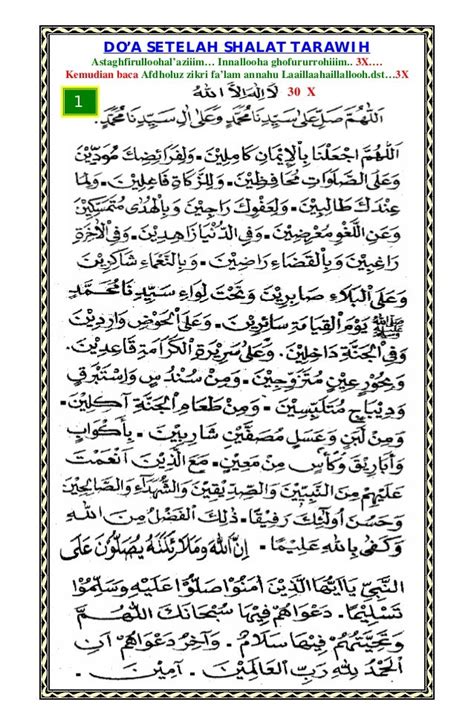 DO'A SETELAH SHALAT TARAWIH
Astaghfirulloohal'aziiim… Innallooha ghofururrohiiim.. 3X….
Kemudian baca Afdholuz zikri fa'lam annahu Laaillaahaillallooh.dst…3X
1
لَا اِلٰهَ اِلَّا اللهُ 30 X
اَللّٰهُمَّ صَلِّ عَلٰى سَيِّدِنَا مُحَمَّدٍ وَعَلٰى اٰلِ سَيِّدِنَا مُحَمَّدٍ.
اَللّٰهُمَّ اجْعَلْنَا بِالْاِيْمَانِ كَامِلِيْنَ. وَلِفَرَائِضِكَ مُوَدِّيْنَ
وَعَلَى الصَّلَوَاتِ مُحَافِظِيْنَ. وَلِلزَّكَاةِ فَاعِلِيْنَ. وَلِمَا
عِنْدَكَ طَالِبِيْنَ. وَلِعَفْوِكَ رَاجِيْنَ وَبِالْهُدٰى مُتَمَسِّكِيْنَ
وَعَنِ اللَّغْوِ مُعْرِضِيْنَ. وَفِى الدُّنْيَا زَاهِدِيْنَ. وَفِى الْاٰخِرَةِ
رَاغِبِيْنَ وَبِالْقَضَاءِ رَاضِيْنَ. وَبِالنَّعْمَاءِ شَاكِرِيْنَ
وَعَلَى الْبَلَاءِ صَابِرِيْنَ وَتَحْتَ لِوَاءِ سَيِّدِنَا مُحَمَّدٍ
ﷺ يَوْمَ الْقِيَامَةِ سَائِرِيْنَ. وَعَلَى الْحَوْضِ وَارِدِيْنَ
وَفِى الْجَنَّةِ دَاخِلِيْنَ. وَعَلٰى سَرِيْرَةِ الْكَرَامَةِ قَاعِدِيْنَ.
وَبِحُوْرٍ عِيْنٍ مُتَزَوِّجِيْنَ. وَمِنْ سُنْدُسٍ وَاِسْتَبْرَقٍ
وَدِيْبَاجٍ مُتَلَبِّسِيْنَ. وَمِنْ طَعَامِ الْجَنَّةِ اٰكِلِيْنَ.
وَمِنْ لَبَنٍ وَعَسَلٍ مُصَفَّيْنِ شَارِبِيْنَ. بِاَكْوَابٍ
وَاَبَارِيْقَ وَكَأْسٍ مِنْ مَعِيْنٍ. مَعَ الَّذِيْنَ اَنْعَمْتَ
عَلَيْهِمْ مِنَ النَّبِيِّيْنَ وَالصِّدِّيْقِيْنَ وَالشُّهَدَاءِ وَالصَّالِحِيْنَ
وَحَسُنَ اُولٰئِكَ رَفِيْقًا. ذٰلِكَ الْفَضْلُ مِنَ اللهِ
وَكَفٰى بِاللهِ عَلِيْمًا. اِنَّ اللهَ وَمَلَائِكَتَهُ يُصَلُّوْنَ عَلَى
النَّبِيِّ يَااَيُّهَا الَّذِيْنَ اٰمَنُوْا صَلُّوْا عَلَيْهِ وَسَلِّمُوْا
تَسْلِيْمًا. دَعْوَاهُمْ فِيْهَا سُبْحَانَكَ اللّٰهُمَّ
وَتَحِيَّتُهُمْ فِيْهَا سَلَامٌ. وَاٰخِرُ دَعْوَاهُمْ اَنِ
الْحَمْدُ لِلّٰهِ رَبِّ الْعَالَمِيْنَ. اٰمِيْنَ.